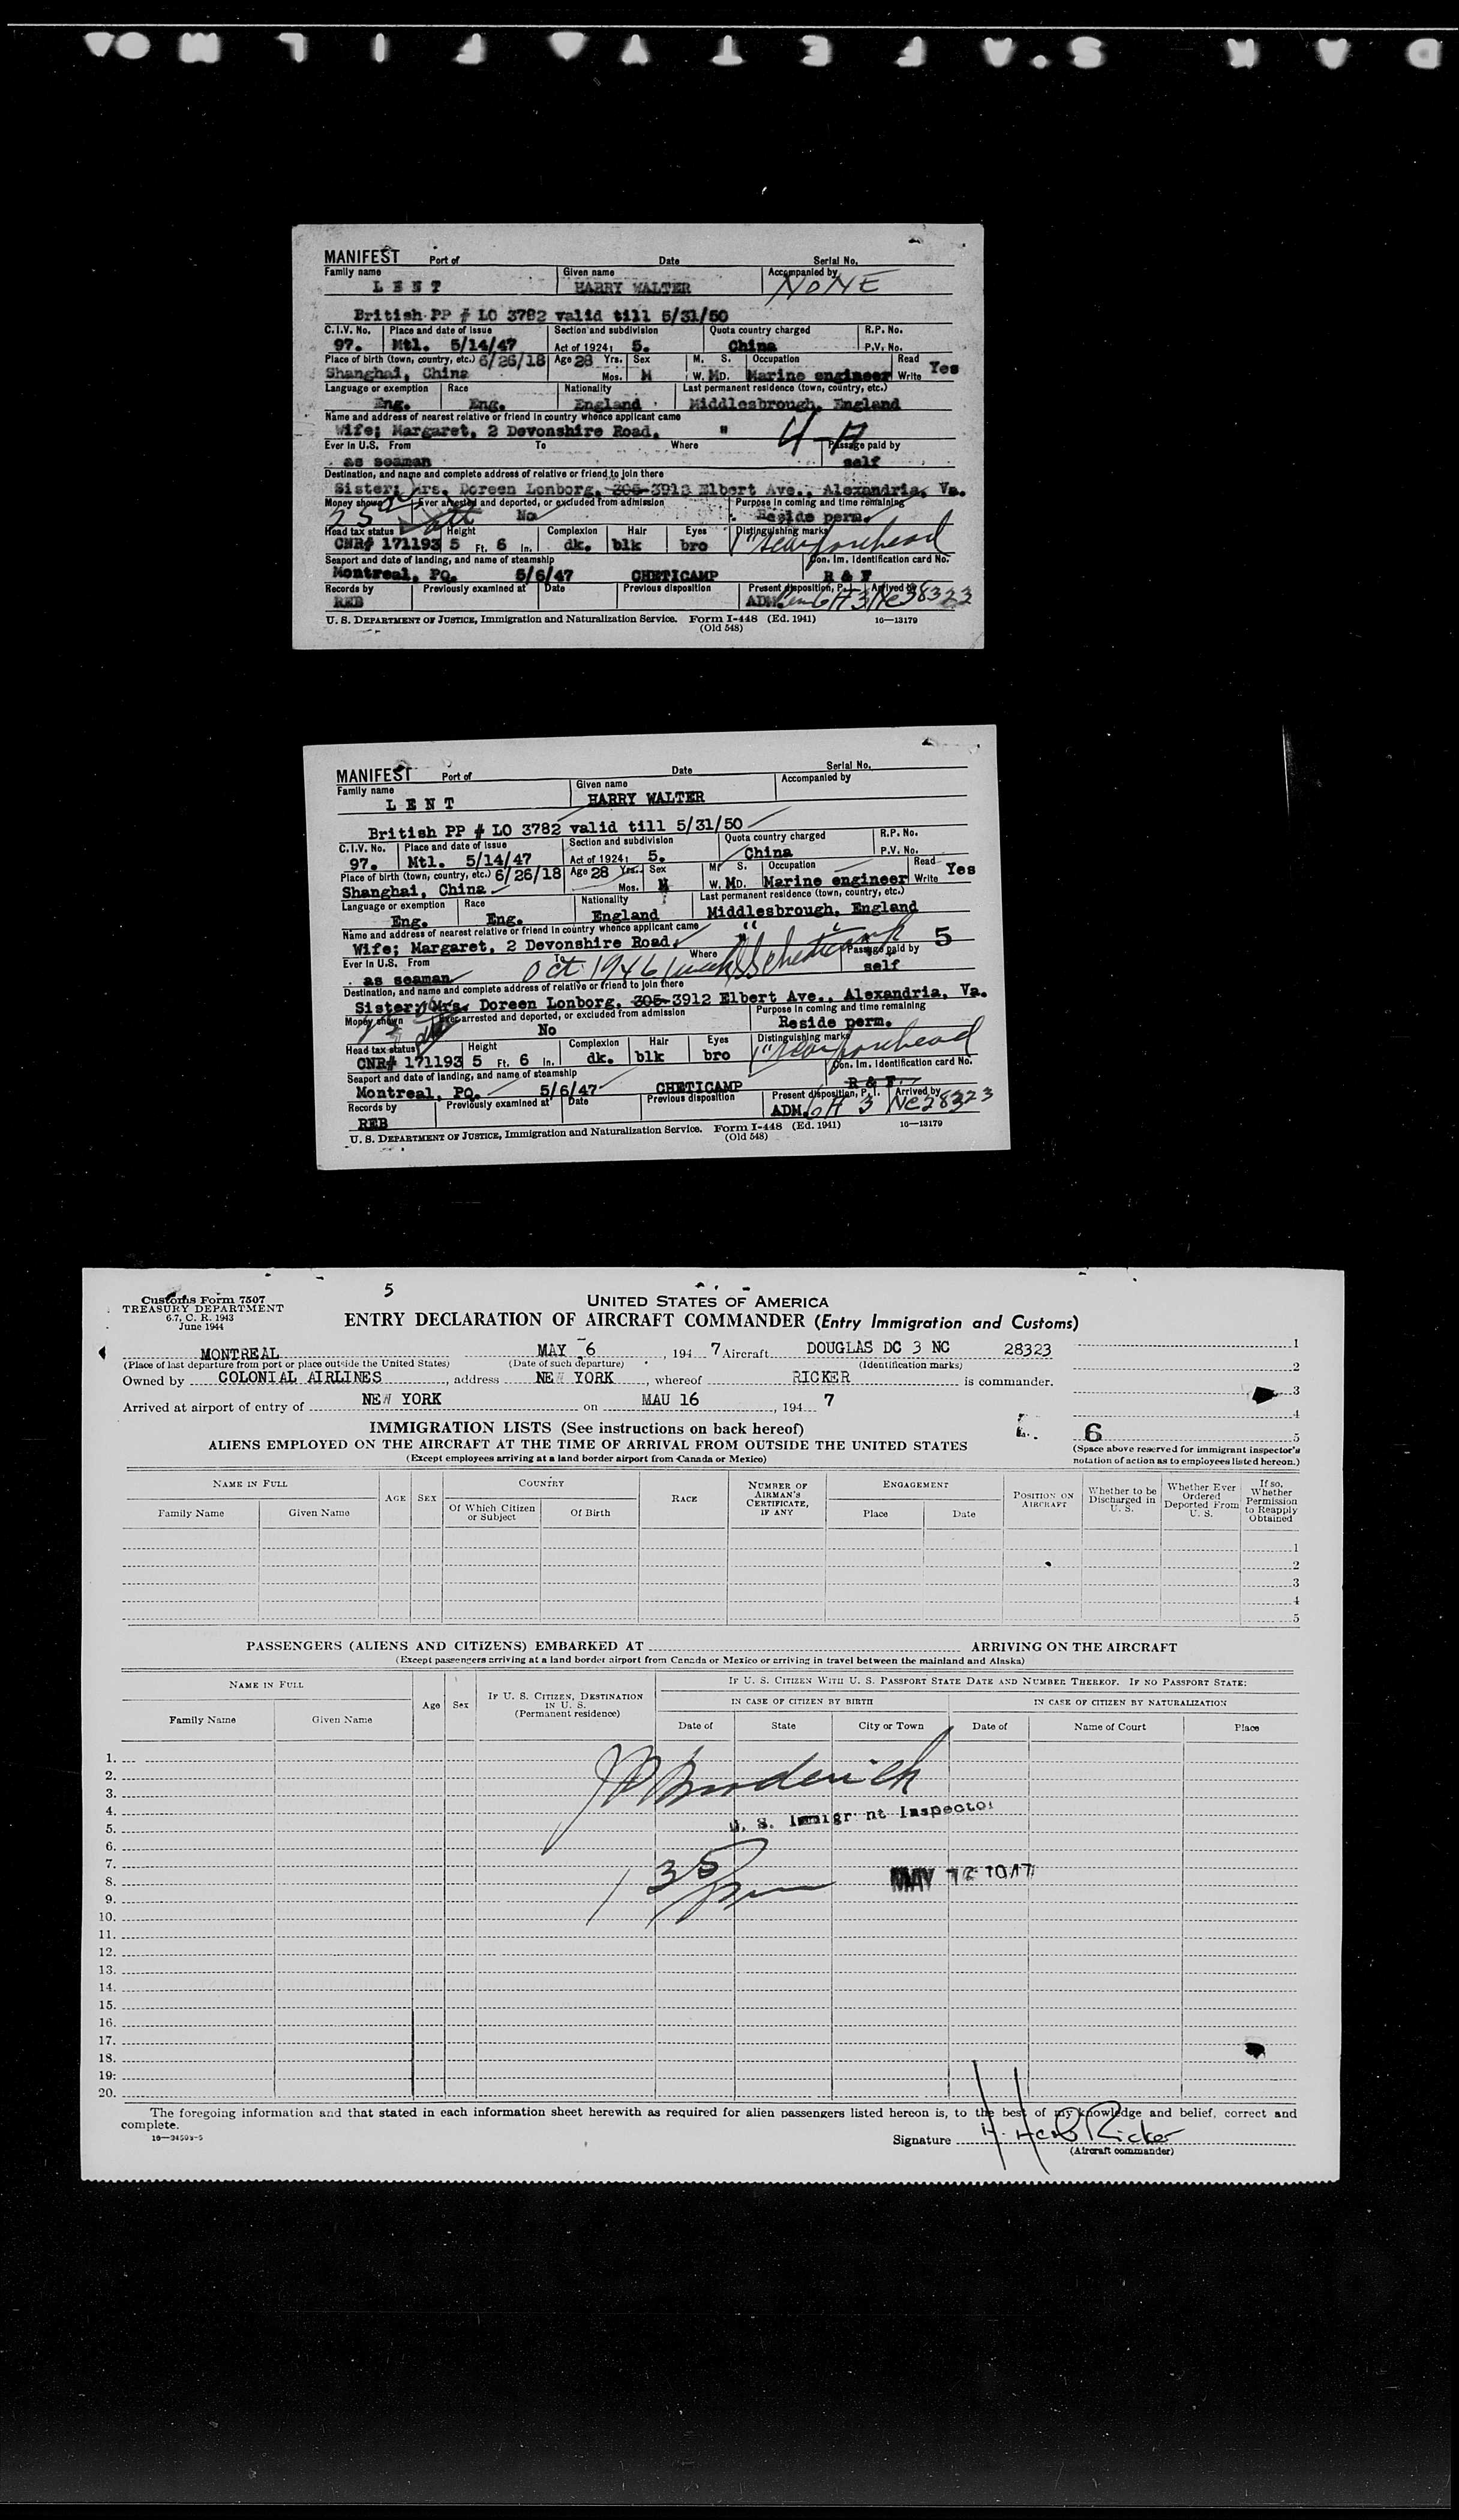 MANIFEST Port of Date Serial No.
Family name Given name Accompanied by
LENT HARRY WALTER NONE
British PP # LO 3782 valid till 5/31/50
C.I.V. No. Place and date of issue Section and subdivision Quota country charged R.P. No.
97. Mtl. 5/14/47 Act of 1924; 5. China P.V. No.
Place of birth (town, country, etc.) 6/26/18 Age 28 Yrs. Sex M. S. Occupation Read Yes
Shanghai, China Mos. M W. MD. Marine engineer Write
Language or exemption Race Nationality Last permanent residence (town, country, etc.)
Eng. Eng. England Middlesbrough, England
Name and address of nearest relative or friend in country whence applicant came
Wife; Margaret, 2 Devonshire Road. "
Ever in U.S. From To Where 4-A Passage paid by
as seaman self
Destination, and name and complete address of relative or friend to join there
Sister; Mrs. Doreen Lonborg, 305-3912 Elbert Ave., Alexandria, Va.
Money shown Ever arrested and deported, or excluded from admission Purpose in coming and time remaining
No Reside perm.
Head tax status Height Complexion Hair Eyes Distinguishing marks
CNR# 171193 5 Ft. 6 In. dk. blk bro 1" scar forehead
Seaport and date of landing, and name of steamship Con. Im. Identification card No.
Montreal, PQ. 5/6/47 CHETICAMP R & F
Records by Previously examined at Date Previous disposition Present disposition, P.I. Arrived by
REB ADM.
U. S. DEPARTMENT OF JUSTICE, Immigration and Naturalization Service. Form I-448 (Ed. 1941) 16—13179
(Old 548)
MANIFEST Port of Date Serial No.
Family name Given name Accompanied by
LENT HARRY WALTER
British PP # LO 3782 valid till 5/31/50
C.I.V. No. Place and date of issue Section and subdivision Quota country charged R.P. No.
97. Mtl. 5/14/47 Act of 1924; 5. China P.V. No.
Place of birth (town, country, etc.) 6/26/18 Age 28 Yrs. Sex M. S. Occupation Read Yes
Shanghai, China Mos. M W. MD. Marine engineer Write
Language or exemption Race Nationality Last permanent residence (town, country, etc.)
Eng. Eng. England Middlesbrough, England
Name and address of nearest relative or friend in country whence applicant came
Wife; Margaret, 2 Devonshire Road. " 5
Ever in U.S. From To Where Passage paid by
as seaman Oct 1946 1 week self
Destination, and name and complete address of relative or friend to join there
Sister; Mrs. Doreen Lonborg, 305-3912 Elbert Ave., Alexandria, Va.
Money shown Ever arrested and deported, or excluded from admission Purpose in coming and time remaining
No Reside perm.
Head tax status Height Complexion Hair Eyes Distinguishing marks
CNR# 171193 5 Ft. 6 In. dk. blk bro 1" scar forehead
Seaport and date of landing, and name of steamship Con. Im. Identification card No.
Montreal, PQ. 5/6/47 CHETICAMP R & F
Records by Previously examined at Date Previous disposition Present disposition, P.I. Arrived by
REB ADM. 6A 3 NC28323
U. S. DEPARTMENT OF JUSTICE, Immigration and Naturalization Service. Form I-448 (Ed. 1941) 16—13179
(Old 548)
Customs Form 7507
TREASURY DEPARTMENT
6.7, C. R. 1943
June 1944
5
UNITED STATES OF AMERICA
ENTRY DECLARATION OF AIRCRAFT COMMANDER (Entry Immigration and Customs)
MONTREAL MAY 6, 194 7 Aircraft DOUGLAS DC 3 NC 28323 1
(Place of last departure from port or place outside the United States) (Date of such departure) (Identification marks) 2
Owned by COLONIAL AIRLINES, address NEW YORK, whereof RICKER is commander. 3
Arrived at airport of entry of NEW YORK on MAU 16, 194 7 4
IMMIGRATION LISTS (See instructions on back hereof) 6 5
ALIENS EMPLOYED ON THE AIRCRAFT AT THE TIME OF ARRIVAL FROM OUTSIDE THE UNITED STATES
(Except employees arriving at a land border airport from Canada or Mexico)
(Space above reserved for immigrant inspector's notation of action as to employees listed hereon.)
NAME IN FULL AGE SEX COUNTRY RACE NUMBER OF AIRMAN'S CERTIFICATE, IF ANY ENGAGEMENT POSITION ON AIRCRAFT Whether to be Discharged in U. S. Whether Ever Ordered Deported From U. S. If so, Whether Permission to Reapply Obtained
Family Name Given Name Of Which Citizen or Subject Of Birth Place Date
1
2
3
4
5
PASSENGERS (ALIENS AND CITIZENS) EMBARKED AT ARRIVING ON THE AIRCRAFT
(Except passengers arriving at a land border airport from Canada or Mexico or arriving in travel between the mainland and Alaska)
NAME IN FULL Age Sex IF U. S. CITIZEN, DESTINATION IN U. S. (Permanent residence) IF U. S. CITIZEN WITH U. S. PASSPORT STATE DATE AND NUMBER THEREOF. IF NO PASSPORT STATE:
IN CASE OF CITIZEN BY BIRTH IN CASE OF CITIZEN BY NATURALIZATION
Family Name Given Name Date of State City or Town Date of Name of Court Place
1.
2. Broderick
3.
4.
5. U. S. Immigrant Inspector
6.
7.
8. 1 35 pm MAY 16 1947
9.
10.
11.
12.
13.
14.
15.
16.
17.
18.
19.
20.
The foregoing information and that stated in each information sheet herewith as required for alien passengers listed hereon is, to the best of my knowledge and belief, correct and
complete.
16—34503-5
Signature H. Herb Ricker
(Aircraft commander)